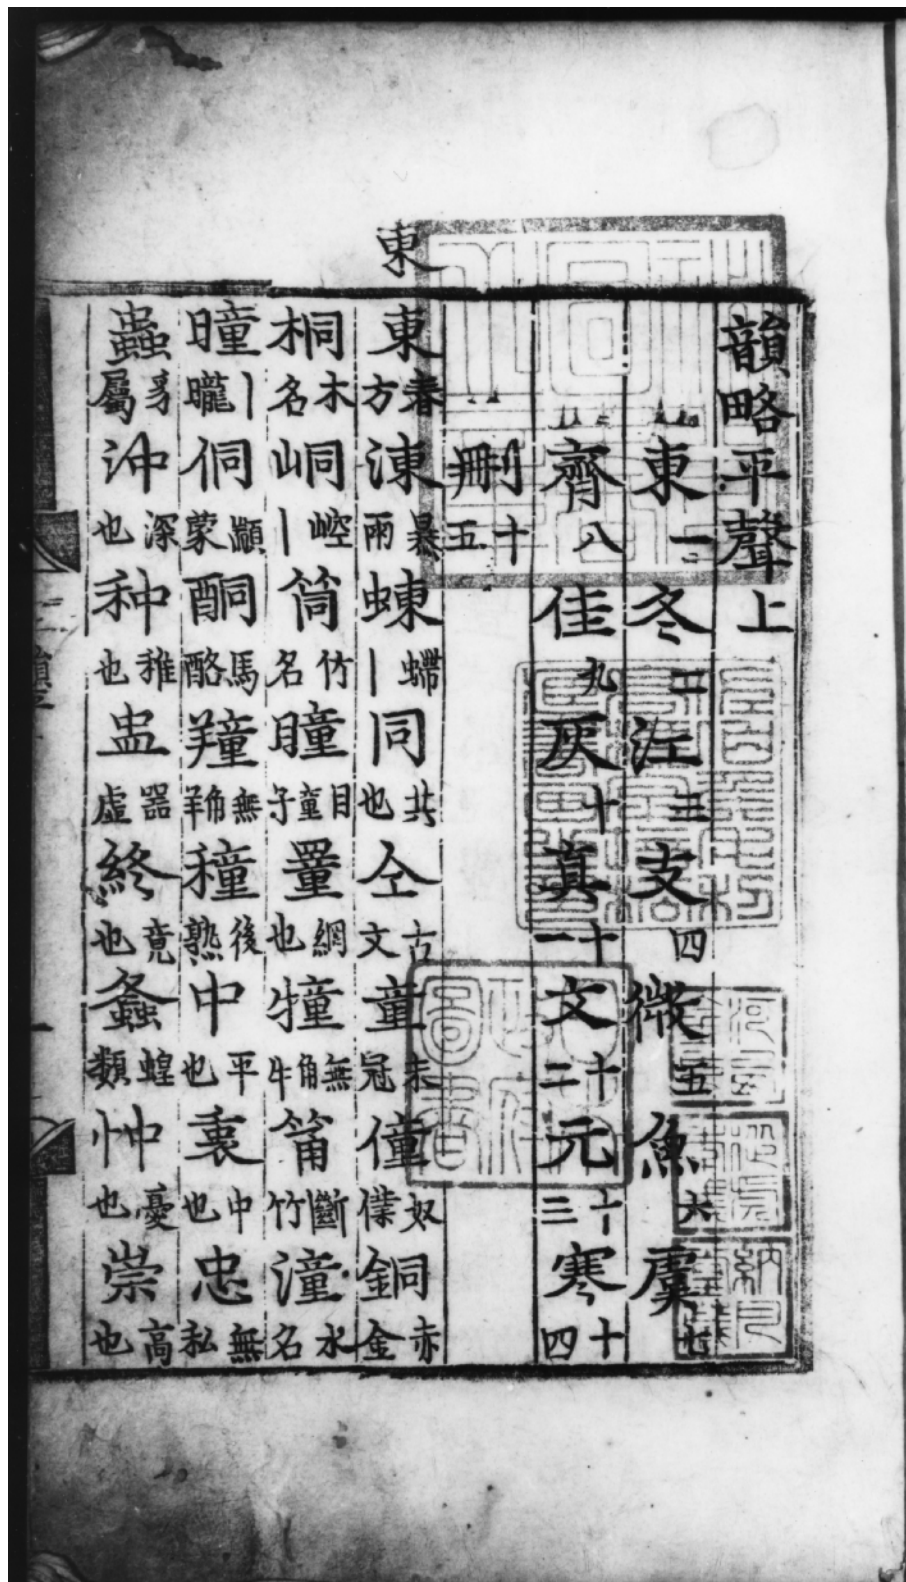 韻略平聲上
東一冬二江三支四微五魚六虞七
齊八佳九灰十真十一文十二元十三寒十四
刪十五
東
東春方涷暴雨蝀螮丨同共也仝古文童未冠僮奴僕銅赤金
桐木名峒崆丨筒竹名瞳目童子罿網也犝無角牛筩斷竹潼水名
曈丨曨侗顓蒙酮馬酪羵無角羊穜後熟中平也衷中也忠無私
蟲豸屬沖深也种稚也盅器虛終竟也螽蝗類忡憂也崇高也